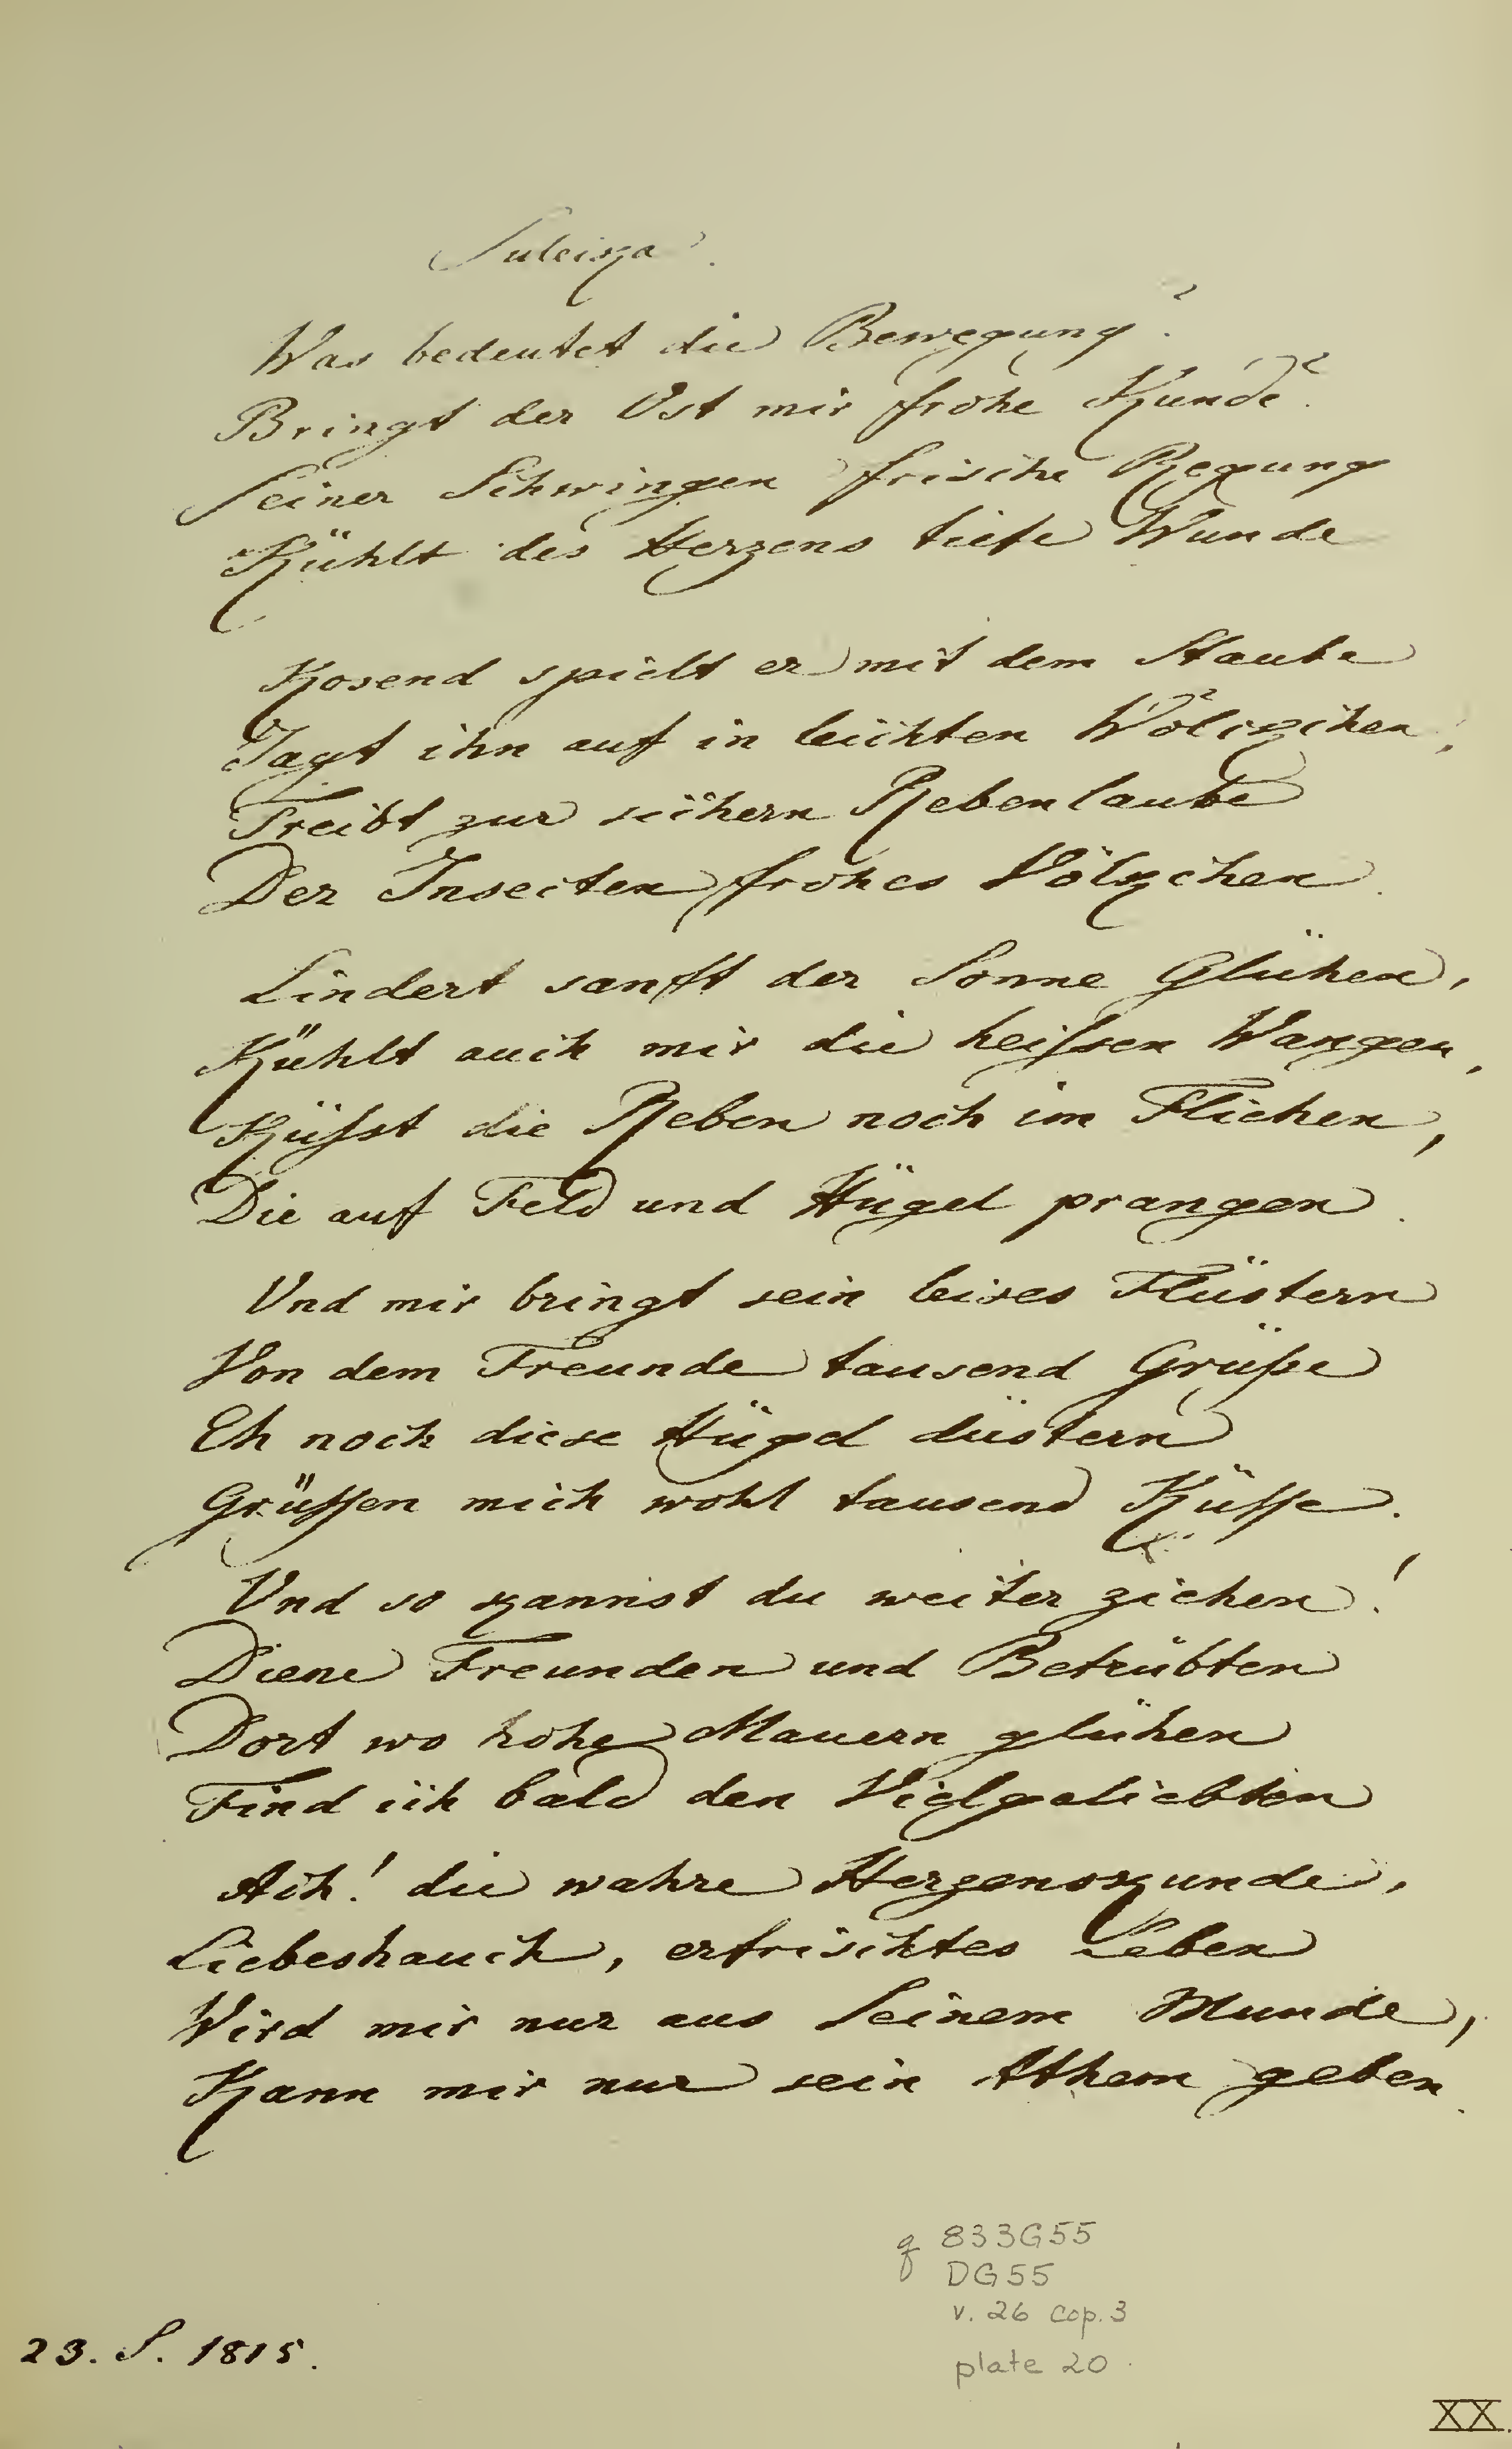 Suleika.
Was bedeutet die Bewegung?
Bringt der Ost mir frohe Kunde?
Seiner Schwingen frische Regung
Kühlt des Herzens tiefe Wunde
Kosend spielt er mit dem Staube
Jagt ihn auf in leichten Wölckchen,
Treibt zur sichern Rebenlaube
Der Insecten frohes Völkchen.
Lindert sanft der Sonne Glühen,
Kühlt auch mir die heissen Wangen,
Küsst die Reben noch im Fliehen,
Die auf Feld und Hügel prangen.
Und mir bringt sein leises Flüstern
Von dem Freunde tausend Grüße
Eh noch diese Hügel düstern
Grüssen mich wohl tausend Küsse.
Und so kannst du weiter ziehen!
Diene Freunden und Betrübten
Dort wo hohe Mauern glühen
Find ich bald den Vielgeliebten
Ach! die wahre Herzenskunde,
Liebeshauch, erfrischtes Leben
Wird mir nur aus Seinem Munde,
Kann mir nur sein Athem geben.
q 833G55
DG55
v. 26 cop. 3
plate 20
23. S. 1815.
XX.